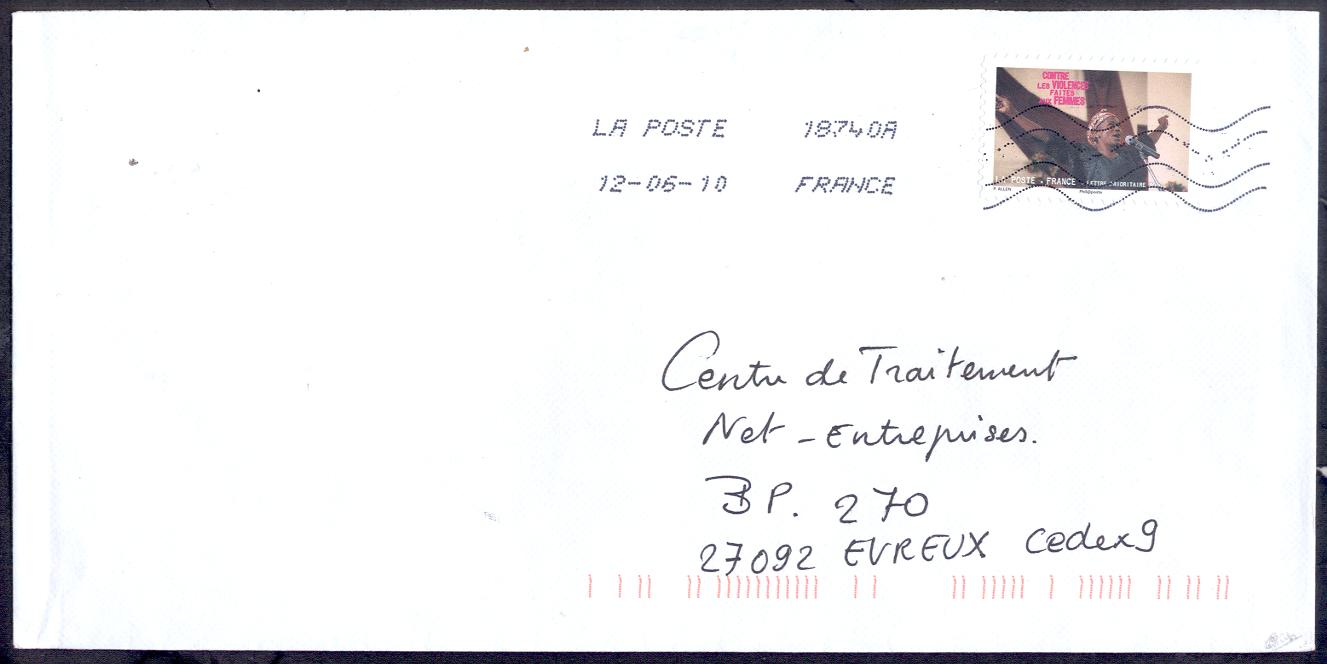 CONTRE
LES VIOLENCES
FAITES
AUX FEMMES
LA POSTE 18740A
12-06-10 FRANCE
LA POSTE - FRANCE - LETTRE PRIORITAIRE
P. ALLEN Phil@poste
Centre de Traitement
Net-Entreprises.
BP. 270
27092 EVREUX Cedex 9